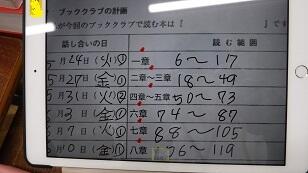 ブッククラブの計画
が今回のブッククラブで読む本は『 』です。
話し合いの日 読む範囲
5月24日(火)① 一章 6〜17
5月27日(金)① 二章〜三章 18〜49
5月31日(火)① 四章〜五章 50〜73
月3日(金)① 六章 74〜87
6月7日(火)① 七章 88〜105
月10日(金)① 八章 106〜119